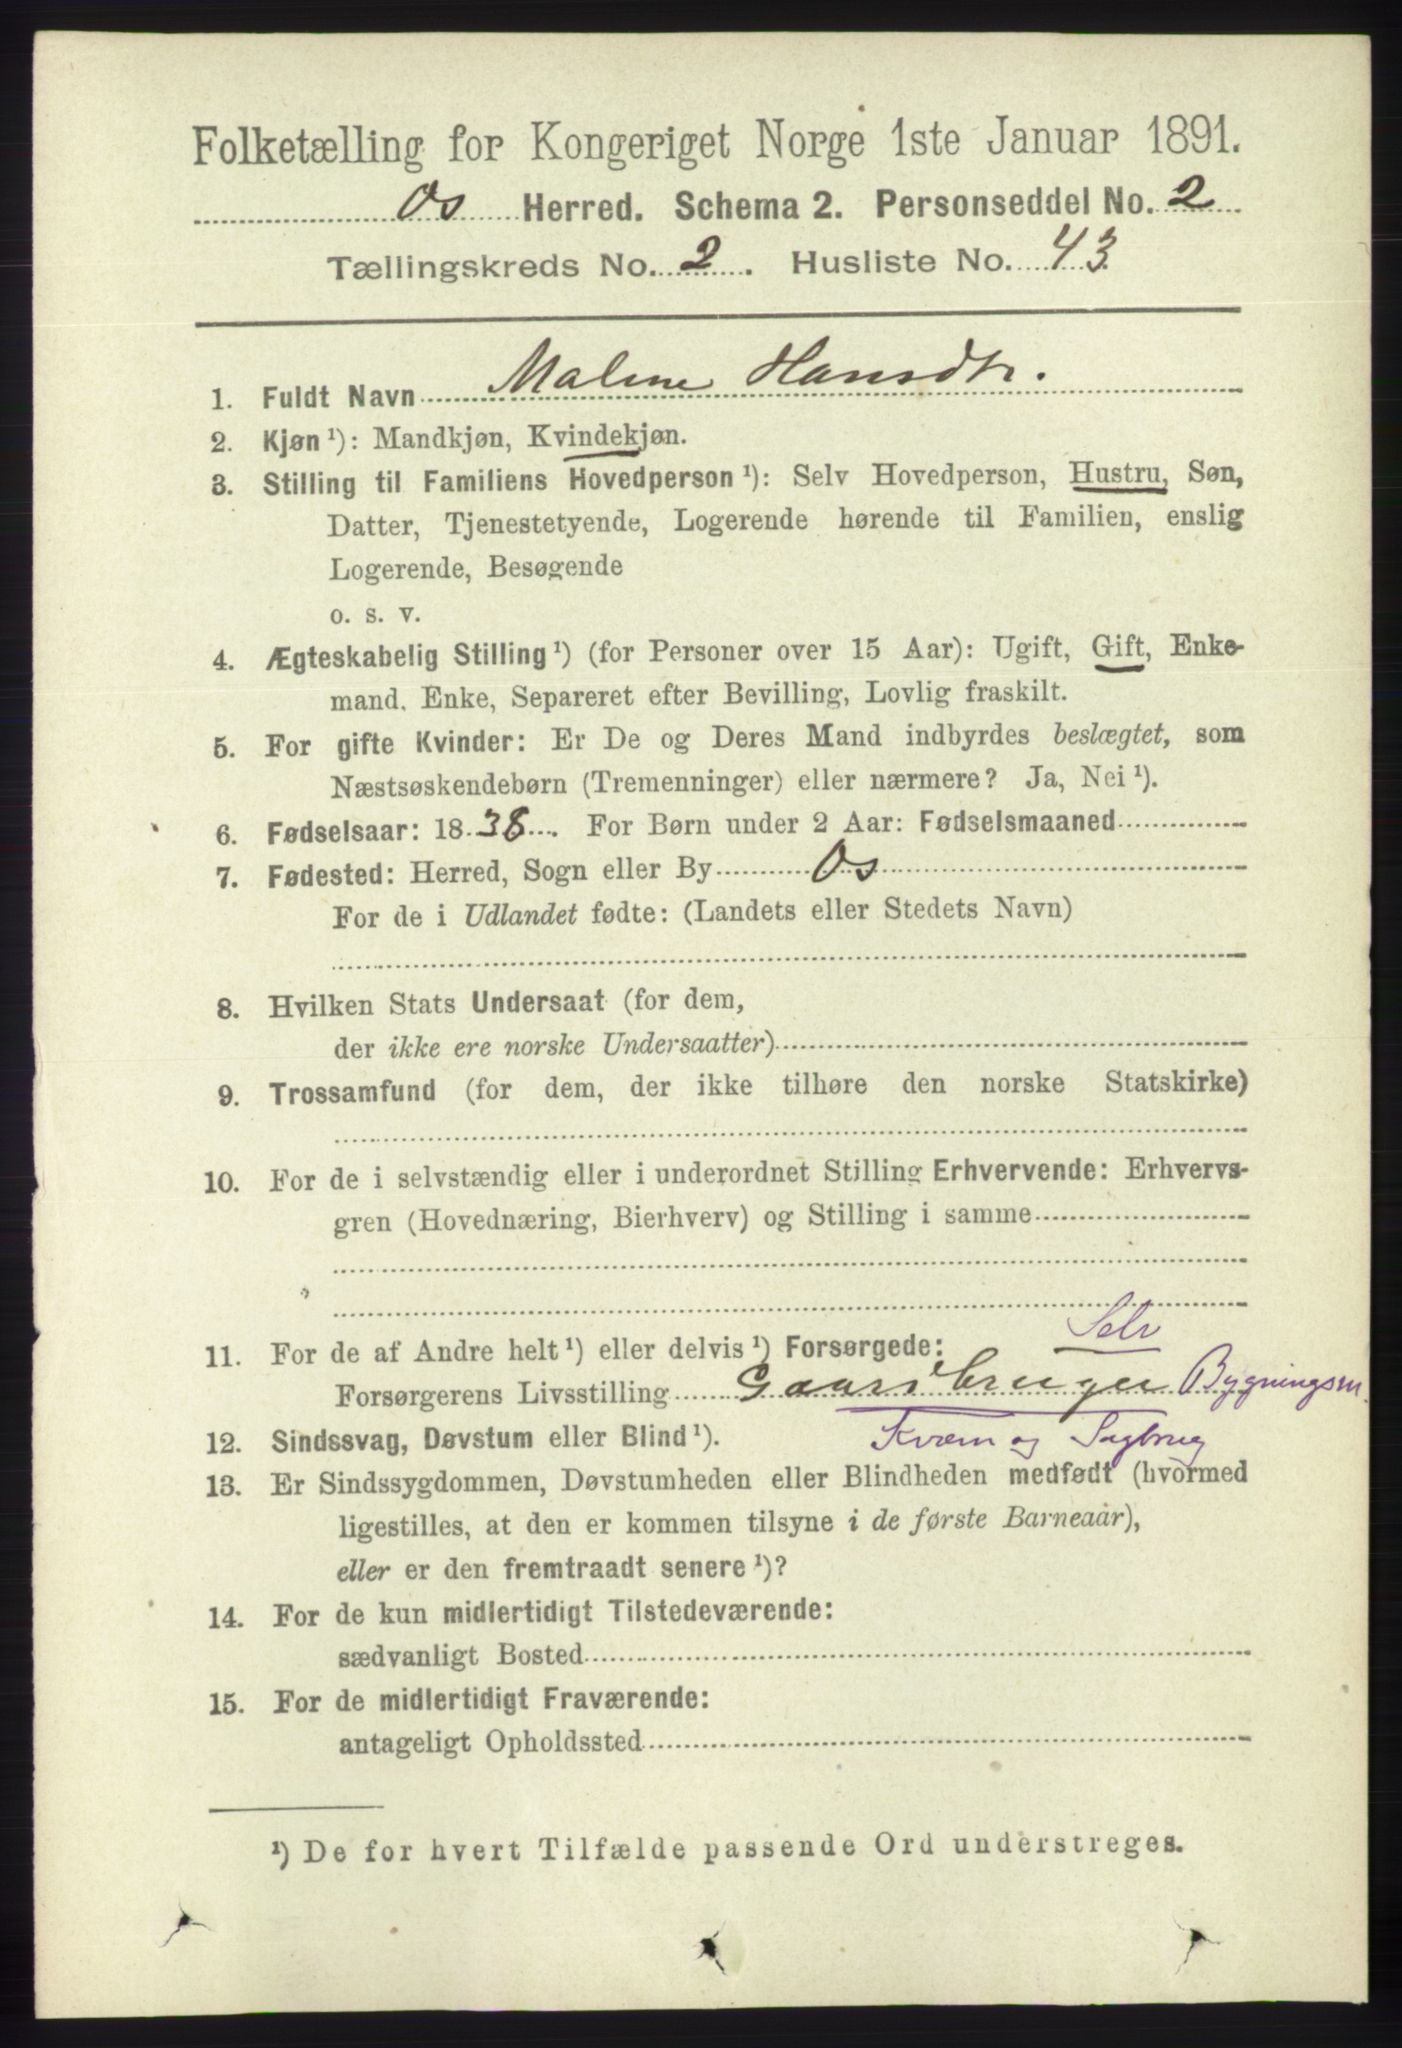 Folketælling for Kongeriget Norge 1ste Januar 1891.
Os Herred. Schema 2. Personseddel No. 2
Tællingskreds No. 2. Husliste No. 43
1. Fuldt Navn Malene Hansdtr.
2. Kjøn ¹): Mandkjøn, Kvindekjøn.
3. Stilling til Familiens Hovedperson ¹): Selv Hovedperson, Hustru, Søn,
Datter, Tjenestetyende, Logerende hørende til Familien, enslig
Logerende, Besøgende
o. s. v.
4. Ægteskabelig Stilling ¹) (for Personer over 15 Aar): Ugift, Gift, Enke-
mand, Enke, Separeret efter Bevilling, Lovlig fraskilt.
5. For gifte Kvinder: Er De og Deres Mand indbyrdes beslægtet, som
Næstsøskendebørn (Tremenninger) eller nærmere? Ja, Nei ¹).
6. Fødselsaar: 1838. For Børn under 2 Aar: Fødselsmaaned
7. Fødested: Herred, Sogn eller By Os
For de i Udlandet fødte: (Landets eller Stedets Navn)
8. Hvilken Stats Undersaat (for dem,
der ikke ere norske Undersaatter)
9. Trossamfund (for dem, der ikke tilhøre den norske Statskirke)
10. For de i selvstændig eller i underordnet Stilling Erhvervende: Erhvervs-
gren (Hovednæring, Bierhverv) og Stilling i samme
Selv
11. For de af Andre helt ¹) eller delvis ¹) Forsørgede:
Forsørgerens Livsstilling Gaardbruger Bygningsm.
Kværn og Sagbrug
12. Sindssvag, Døvstum eller Blind ¹).
13. Er Sindssygdommen, Døvstumheden eller Blindheden medfødt (hvormed
ligestilles, at den er kommen tilsyne i de første Barneaar),
eller er den fremtraadt senere ¹)?
14. For de kun midlertidigt Tilstedeværende:
sædvanligt Bosted
15. For de midlertidigt Fraværende:
antageligt Opholdssted
¹) De for hvert Tilfælde passende Ord understreges.